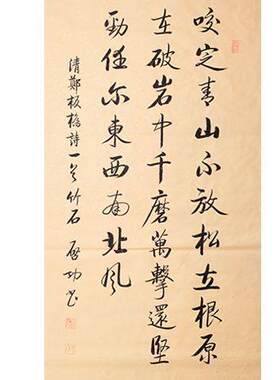 咬定青山不放松立根原
在破岩中千磨萬擊還堅
勁任尔東西南北风
清鄭板橋詩一首竹石 啟功书